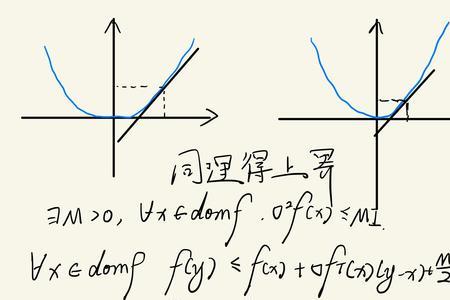 同理得上界
∃M>0, ∀x∈domf. ∇²f(x)≤MI.
∀x∈domf f(y)≤f(x)+∇fᵀ(x)(y-x)+M/2